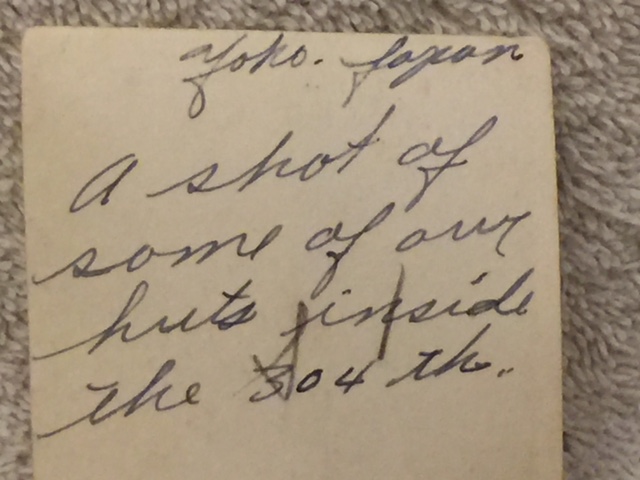 Yoko. Japan
A shot of
some of our
huts inside
the 304 th.